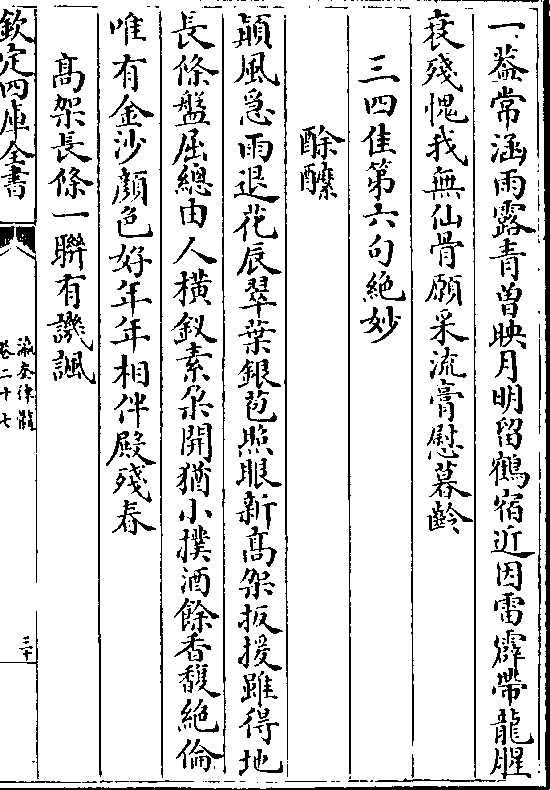 一葢常涵雨露青曽映月明留鶴宿近因雷霹帶龍腥
衰殘愧我無仙骨願采流膏慰暮齡
三四佳第六句絶妙
酴醿
顛風急雨退花辰翠葉銀苞照眼新髙架扳援雖得地
長條盤屈總由人横釵素朶開猶小撲酒餘香馥絶倫
唯有金沙顔色好年年相伴殿殘春
髙架長條一聨有譏諷
欽定四庫全書
瀛奎律髓
卷二十七
三十